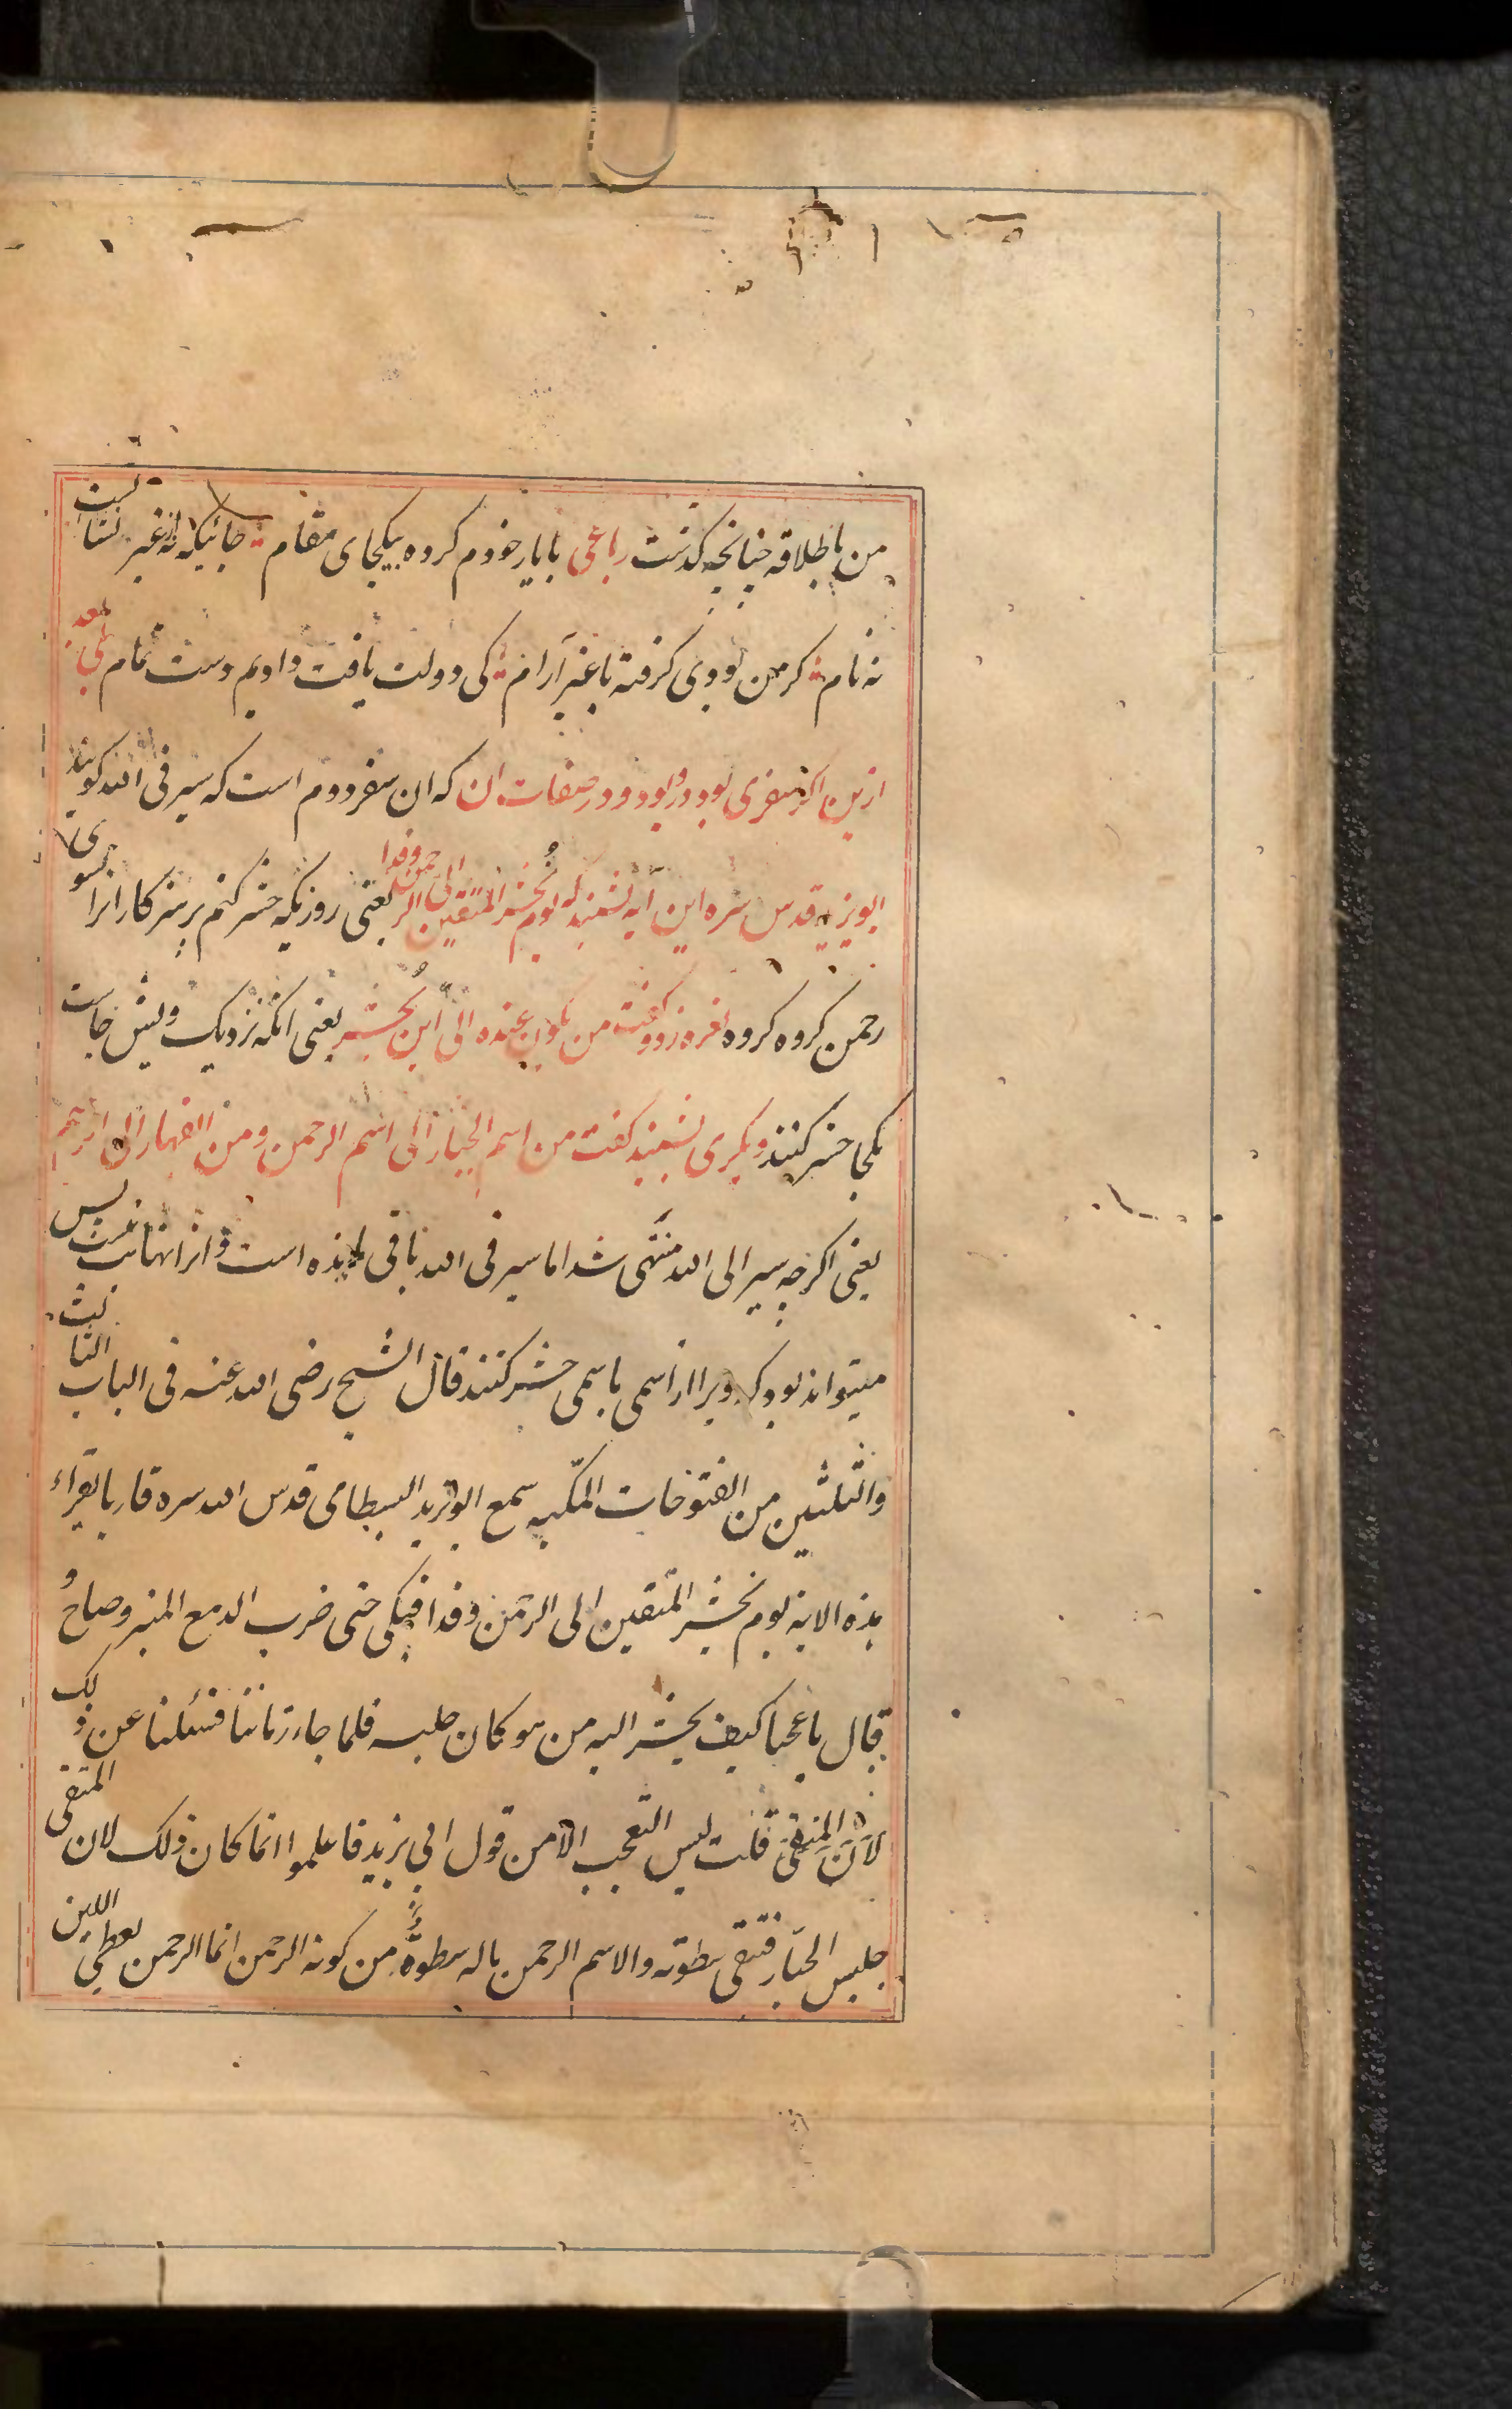 من باطلاقه چنانچه گذشت رباعی با یار خودم کرده بیکجای مقام جائیکه نه از غیر نشانست
نه نام کر من بودی کرفته با غیر آرام کی دولت یافت دادیم دست تمام یعنی بعد
ازین اکر سفری بود در و بود و در صفات ان که ان سفر دوم است که سیر فی الله کویند
ابو یزید قدس سره این آیه بشنید که یوم نحشر المتقین الی الرحمن وفدا یعنی روزیکه حشر کنم پرهیزکارانرا بسوی
رحمن کروه کروه نعره زد و کفت من یکون عنده الی این یحشر یعنی انکه نزدیک ویش جاست
بکجا حشر کنند دیکری بشنید کفت من اسم الجبار الی اسم الرحمن ومن القهار الی الرحیم
یعنی اکرچه سیر الی الله منتهی شد اما سیر فی الله باقی مانده است و انرا نهایت نیست پس
میتواند بود که ویرا از اسمی باسمی حشر کنند قال الشیخ رضی الله عنه فی الباب الثالث
والثلثین من الفتوحات المکیه سمع ابو یزید البسطامی قدس الله سره قاریا یقراء
هذه الایة یوم نحشر المتقین الی الرحمن وفدا فبکی حتی ضرب الدمع المنبر وصاح و
قال یا عجبا کیف یحشر الیه من هو کان جلیسه فلما جاء زماننا فسئلنا عن ذلک
لان المتقی قلت لیس التعجب الا من قول ابی یزید فاعلموا انما کان ذلک لان المتقی
جلیس الجبار فیتقی سطوته والاسم الرحمن ماله سطوة من کونه الرحمن انما الرحمن یعطی اللین